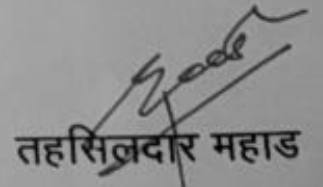 तहसिलदार महाड